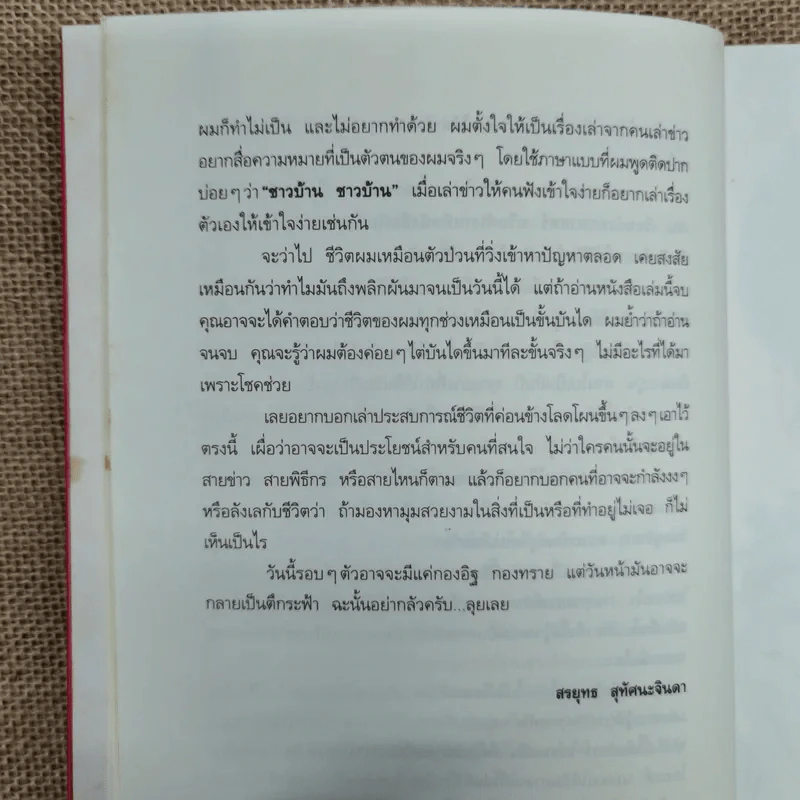 ผมก็ทำไม่เป็น และไม่อยากทำด้วย ผมตั้งใจให้เป็นเรื่องเล่าจากคนเล่าข่าว
อยากสื่อความหมายที่เป็นตัวตนของผมจริงๆ โดยใช้ภาษาแบบที่ผมพูดติดปาก
บ่อยๆว่า “ชาวบ้าน ชาวบ้าน” เมื่อเล่าข่าวให้คนฟังเข้าใจง่ายก็อยากเล่าเรื่อง
ตัวเองให้เข้าใจง่ายเช่นกัน
จะว่าไป ชีวิตผมเหมือนตัวป่วนที่วิ่งเข้าหาปัญหาตลอด เคยสงสัย
เหมือนกันว่าทำไมมันถึงพลิกผันมาจนเป็นวันนี้ได้ แต่ถ้าอ่านหนังสือเล่มนี้จบ
คุณอาจจะได้คำตอบว่าชีวิตของผมทุกช่วงเหมือนเป็นขั้นบันได ผมย้ำว่าถ้าอ่าน
จนจบ คุณจะรู้ว่าผมต้องค่อยๆไต่บันไดขึ้นมาทีละขั้นจริงๆ ไม่มีอะไรที่ได้มา
เพราะโชคช่วย
เลยอยากบอกเล่าประสบการณ์ชีวิตที่ค่อนข้างโลดโผนขึ้นๆลงๆเอาไว้
ตรงนี้ เผื่อว่าอาจจะเป็นประโยชน์สำหรับคนที่สนใจ ไม่ว่าใครคนนั้นจะอยู่ใน
สายข่าว สายพิธีกร หรือสายไหนก็ตาม แล้วก็อยากบอกคนที่อาจจะกำลังงงๆ
หรือลังเลกับชีวิตว่า ถ้ามองหามุมสวยงามในสิ่งที่เป็นหรือที่ทำอยู่ไม่เจอ ก็ไม่
เห็นเป็นไร
วันนี้รอบๆตัวอาจจะมีแค่กองอิฐ กองทราย แต่วันหน้ามันอาจจะ
กลายเป็นตึกระฟ้า ฉะนั้นอย่ากลัวครับ...ลุยเลย
สรยุทธ สุทัศนะจินดา